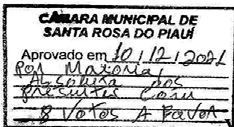 CÂMARA MUNICIPAL DE
SANTA ROSA DO PIAUÍ
Aprovado em 10/12/2021
Por Maioria
Absoluta dos
presentes com
8 Votos A Favor